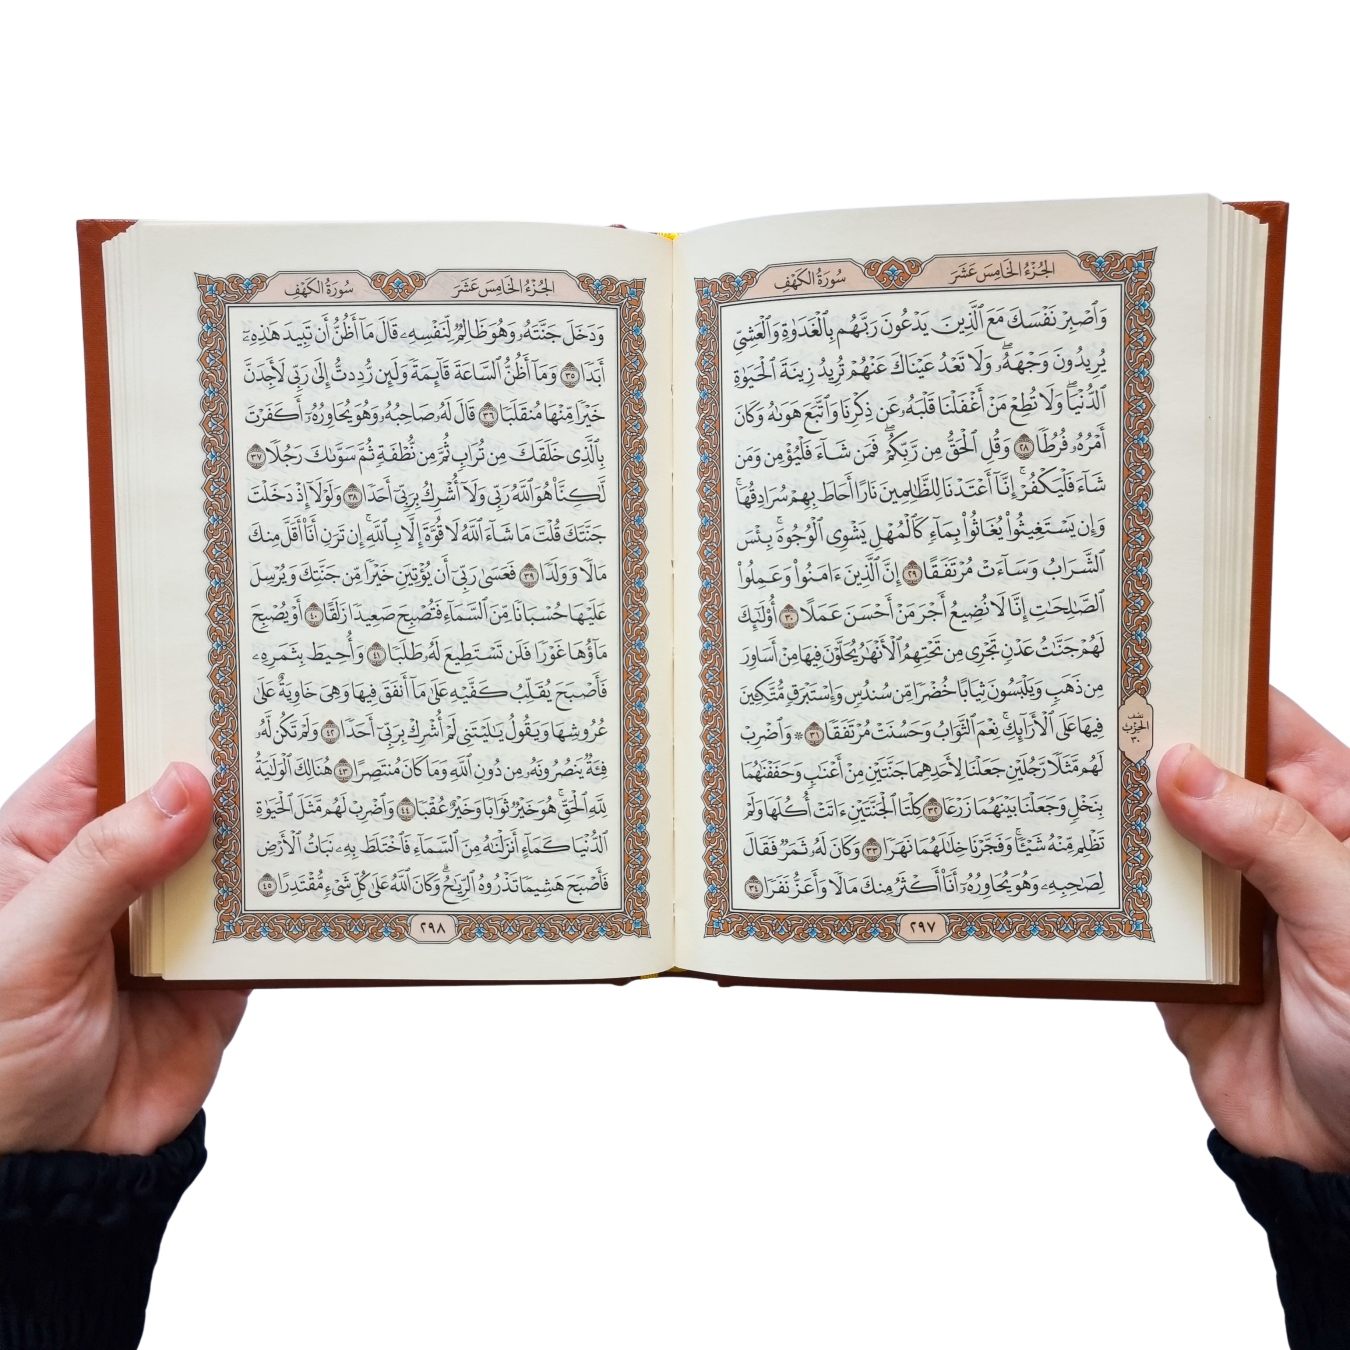 الجُزْءُ الخَامِسَ عَشَرَ
سُورَةُ الكَهْفِ
وَٱصْبِرْ نَفْسَكَ مَعَ ٱلَّذِينَ يَدْعُونَ رَبَّهُم بِٱلْغَدَوٰةِ وَٱلْعَشِىِّ
يُرِيدُونَ وَجْهَهُۥۖ وَلَا تَعْدُ عَيْنَاكَ عَنْهُمْ تُرِيدُ زِينَةَ ٱلْحَيَوٰةِ
ٱلدُّنْيَاۖ وَلَا تُطِعْ مَنْ أَغْفَلْنَا قَلْبَهُۥ عَن ذِكْرِنَا وَٱتَّبَعَ هَوَىٰهُ وَكَانَ
أَمْرُهُۥ فُرُطًا ٢٨ وَقُلِ ٱلْحَقُّ مِن رَّبِّكُمْۖ فَمَن شَآءَ فَلْيُؤْمِن وَمَن
شَآءَ فَلْيَكْفُرْۚ إِنَّآ أَعْتَدْنَا لِلظَّٰلِمِينَ نَارًا أَحَاطَ بِهِمْ سُرَادِقُهَاۚ
وَإِن يَسْتَغِيثُوا۟ يُغَاثُوا۟ بِمَآءٍ كَٱلْمُهْلِ يَشْوِى ٱلْوُجُوهَۚ بِئْسَ
ٱلشَّرَابُ وَسَآءَتْ مُرْتَفَقًا ٢٩ إِنَّ ٱلَّذِينَ ءَامَنُوا۟ وَعَمِلُوا۟
ٱلصَّٰلِحَٰتِ إِنَّا لَا نُضِيعُ أَجْرَ مَنْ أَحْسَنَ عَمَلًا ٣٠ أُو۟لَٰٓئِكَ
لَهُمْ جَنَّٰتُ عَدْنٍ تَجْرِى مِن تَحْتِهِمُ ٱلْأَنْهَٰرُ يُحَلَّوْنَ فِيهَا مِنْ أَسَاوِرَ
مِن ذَهَبٍ وَيَلْبَسُونَ ثِيَابًا خُضْرًا مِّن سُندُسٍ وَإِسْتَبْرَقٍ مُّتَّكِـِٔينَ
فِيهَا عَلَى ٱلْأَرَآئِكِۚ نِعْمَ ٱلثَّوَابُ وَحَسُنَتْ مُرْتَفَقًا ٣١ ۞ وَٱضْرِبْ
لَهُم مَّثَلًا رَّجُلَيْنِ جَعَلْنَا لِأَحَدِهِمَا جَنَّتَيْنِ مِنْ أَعْنَٰبٍ وَحَفَفْنَٰهُمَا
بِنَخْلٍ وَجَعَلْنَا بَيْنَهُمَا زَرْعًا ٣٢ كِلْتَا ٱلْجَنَّتَيْنِ ءَاتَتْ أُكُلَهَا وَلَمْ
تَظْلِم مِّنْهُ شَيْـًٔاۚ وَفَجَّرْنَا خِلَٰلَهُمَا نَهَرًا ٣٣ وَكَانَ لَهُۥ ثَمَرٌ فَقَالَ
لِصَٰحِبِهِۦ وَهُوَ يُحَاوِرُهُۥٓ أَنَا۠ أَكْثَرُ مِنكَ مَالًا وَأَعَزُّ نَفَرًا ٣٤
نصف
الحِزْب
٣٠
٢٩٧
الجُزْءُ الخَامِسَ عَشَرَ
سُورَةُ الكَهْفِ
وَدَخَلَ جَنَّتَهُۥ وَهُوَ ظَالِمٌ لِّنَفْسِهِۦ قَالَ مَآ أَظُنُّ أَن تَبِيدَ هَٰذِهِۦٓ
أَبَدًا ٣٥ وَمَآ أَظُنُّ ٱلسَّاعَةَ قَآئِمَةً وَلَئِن رُّدِدتُّ إِلَىٰ رَبِّى لَأَجِدَنَّ
خَيْرًا مِّنْهَا مُنقَلَبًا ٣٦ قَالَ لَهُۥ صَاحِبُهُۥ وَهُوَ يُحَاوِرُهُۥٓ أَكَفَرْتَ
بِٱلَّذِى خَلَقَكَ مِن تُرَابٍ ثُمَّ مِن نُّطْفَةٍ ثُمَّ سَوَّىٰكَ رَجُلًا ٣٧
لَّٰكِنَّا۠ هُوَ ٱللَّهُ رَبِّى وَلَآ أُشْرِكُ بِرَبِّىٓ أَحَدًا ٣٨ وَلَوْلَآ إِذْ دَخَلْتَ
جَنَّتَكَ قُلْتَ مَا شَآءَ ٱللَّهُ لَا قُوَّةَ إِلَّا بِٱللَّهِۚ إِن تَرَنِ أَنَا۠ أَقَلَّ مِنكَ
مَالًا وَوَلَدًا ٣٩ فَعَسَىٰ رَبِّىٓ أَن يُؤْتِيَنِ خَيْرًا مِّن جَنَّتِكَ وَيُرْسِلَ
عَلَيْهَا حُسْبَانًا مِّنَ ٱلسَّمَآءِ فَتُصْبِحَ صَعِيدًا زَلَقًا ٤٠ أَوْ يُصْبِحَ
مَآؤُهَا غَوْرًا فَلَن تَسْتَطِيعَ لَهُۥ طَلَبًا ٤١ وَأُحِيطَ بِثَمَرِهِۦ
فَأَصْبَحَ يُقَلِّبُ كَفَّيْهِ عَلَىٰ مَآ أَنفَقَ فِيهَا وَهِىَ خَاوِيَةٌ عَلَىٰ
عُرُوشِهَا وَيَقُولُ يَٰلَيْتَنِى لَمْ أُشْرِكْ بِرَبِّىٓ أَحَدًا ٤٢ وَلَمْ تَكُن لَّهُۥ
فِئَةٌ يَنصُرُونَهُۥ مِن دُونِ ٱللَّهِ وَمَا كَانَ مُنتَصِرًا ٤٣ هُنَالِكَ ٱلْوَلَٰيَةُ
لِلَّهِ ٱلْحَقِّۚ هُوَ خَيْرٌ ثَوَابًا وَخَيْرٌ عُقْبًا ٤٤ وَٱضْرِبْ لَهُم مَّثَلَ ٱلْحَيَوٰةِ
ٱلدُّنْيَا كَمَآءٍ أَنزَلْنَٰهُ مِنَ ٱلسَّمَآءِ فَٱخْتَلَطَ بِهِۦ نَبَاتُ ٱلْأَرْضِ
فَأَصْبَحَ هَشِيمًا تَذْرُوهُ ٱلرِّيَٰحُۗ وَكَانَ ٱللَّهُ عَلَىٰ كُلِّ شَىْءٍ مُّقْتَدِرًا ٤٥
٢٩٨